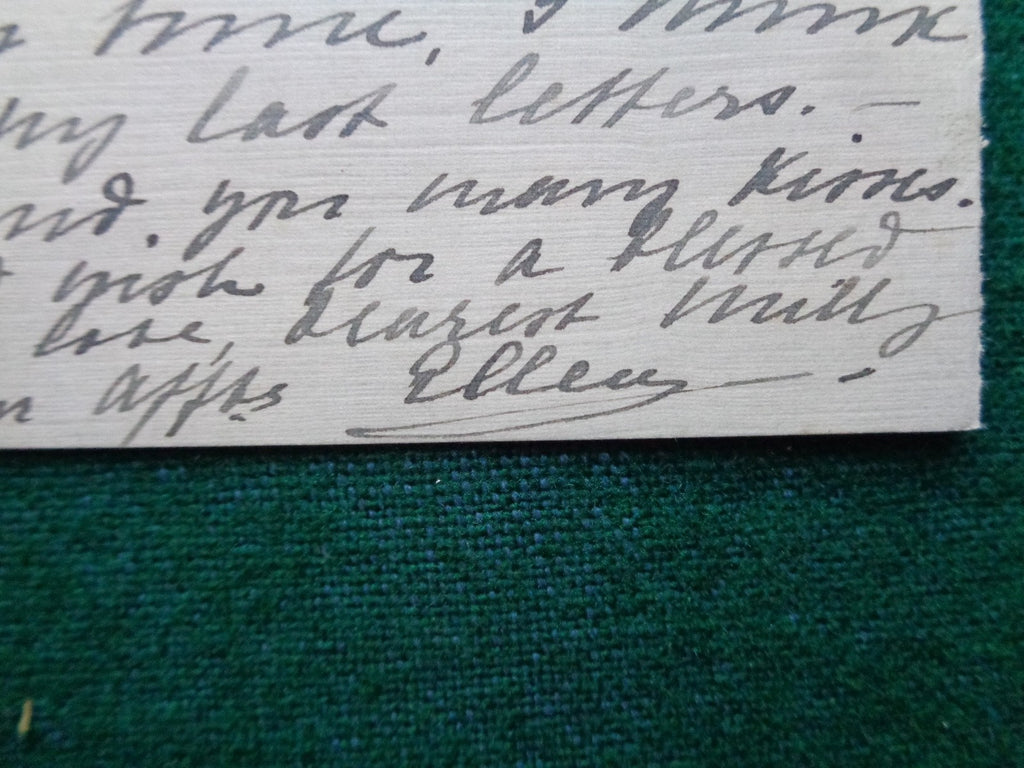 time, I think
my last letters. —
you many kisses.
wish for a blessed
love, dearest Milly
affte Ellen —